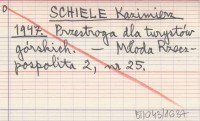 SCHIELE Kazimierz
1947. Przestroga dla turystów
górskich. — Młoda Rzecz-
pospolita 2, nr 25.